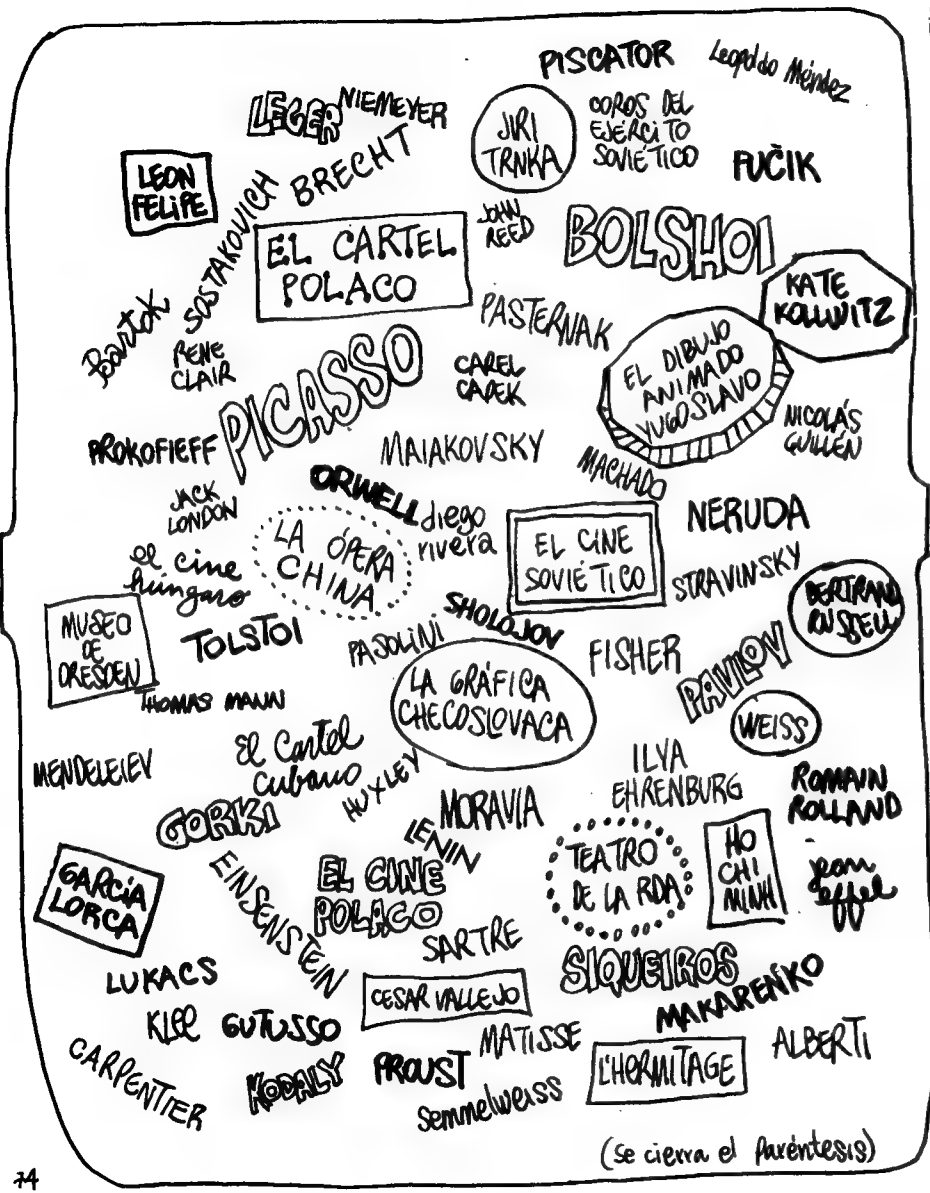 PISCATOR
Leopoldo Méndez
LEGER
NIEMEYER
JIRI
TRNKA
COROS DEL
EJÉRCITO
SOVIÉTICO
FUČIK
LEON
FELIPE
BRECHT
SOSTAKOVICH
JOHN
REED
BOLSHOI
EL CARTEL
POLACO
KATE
KOLLWITZ
Bartok
RENE
CLAIR
PASTERNAK
PICASSO
CAREL
CAPEK
EL DIBUJO
ANIMADO
YUGOSLAVO
NICOLÁS
GUILLÉN
PROKOFIEFF
MAIAKOVSKY
MACHADO
JACK
LONDON
ORWELL
diego
rivera
NERUDA
LA ÓPERA
CHINA
EL CINE
SOVIÉTICO
el cine
húngaro
STRAVINSKY
BERTRAND
RUSSELL
MUSEO
DE
DRESDEN
TOLSTOI
PASOLINI
SHOLOJOV
FISHER
PAVLOV
THOMAS MANN
LA GRÁFICA
CHECOSLOVACA
WEISS
MENDELEIEV
El Cartel
Cubano
HUXLEY
ILYA
EHRENBURG
ROMAIN
ROLLAND
GORKI
MORAVIA
LENIN
TEATRO
DE LA RDA
HO
CHI
MINH
jean
effel
GARCÍA
LORCA
EINSENSTEIN
EL CINE
POLACO
SARTRE
SIQUEIROS
LUKACS
CESAR VALLEJO
MAKARENKO
KLEE
GUTUSSO
MATISSE
ALBERTI
CARPENTIER
KODALY
PROUST
L'HERMITAGE
Semmelweiss
(se cierra el Paréntesis)
74